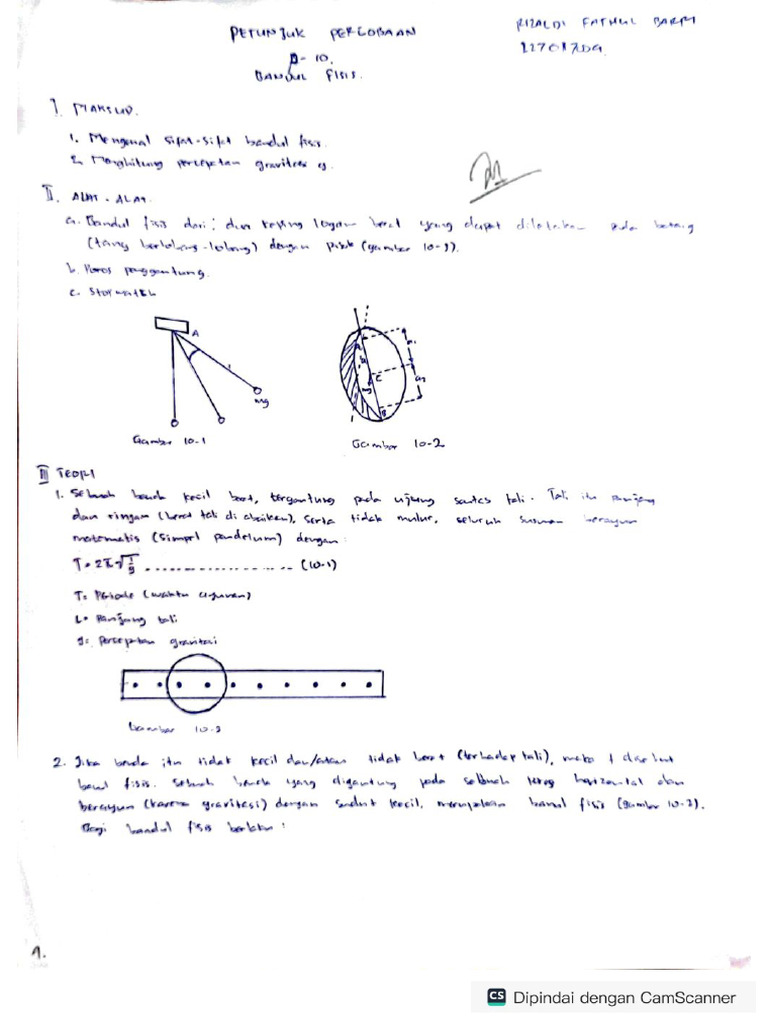 PETUNJUK PERCOBAAN
RIZALDI FATHUL BARRI
D-10.
BANDUL FISIS.
I. MAKSUD.
1. Mengenal sifat-sifat bandul fisis.
2. Menghitung percepatan gravitasi g.
II. ALAT-ALAT.
a. Bandul fisis dari: dua keping logam berat yang dapat diletakan pada batang
(yang berlobang-lobang) dengan pisok (gambar 10-3).
b. Poros penggantung.
c. STOPWATCH
A
mg
Gambar 10-1
A
a1
C
a2
mg
B
Gambar 10-2
III TEORI
1. Sebuah benda kecil berat, tergantung pada ujung seutas tali. Tali itu panjang
dan ringan (berat tali di abaikan), serta tidak mulur, seluruh susunan berayun
matematis (simpel pendelum) dengan:
T = 2π√l/g ..................... (10-1)
T = Periode (waktu ayunan)
L = Panjang tali
g = percepatan gravitasi
Gambar 10-3
2. Jika benda itu tidak kecil dan/atau tidak berat (terhadap tali), maka
fisis. Sebuah benda yang digantung pada sebuah horizontal dan
berayun (karena gravitasi) dengan sudut kecil, merupakan fisis (gambar 10-2).
Bagi bandul fisis berlaku:
1.
CS Dipindai dengan CamScanner